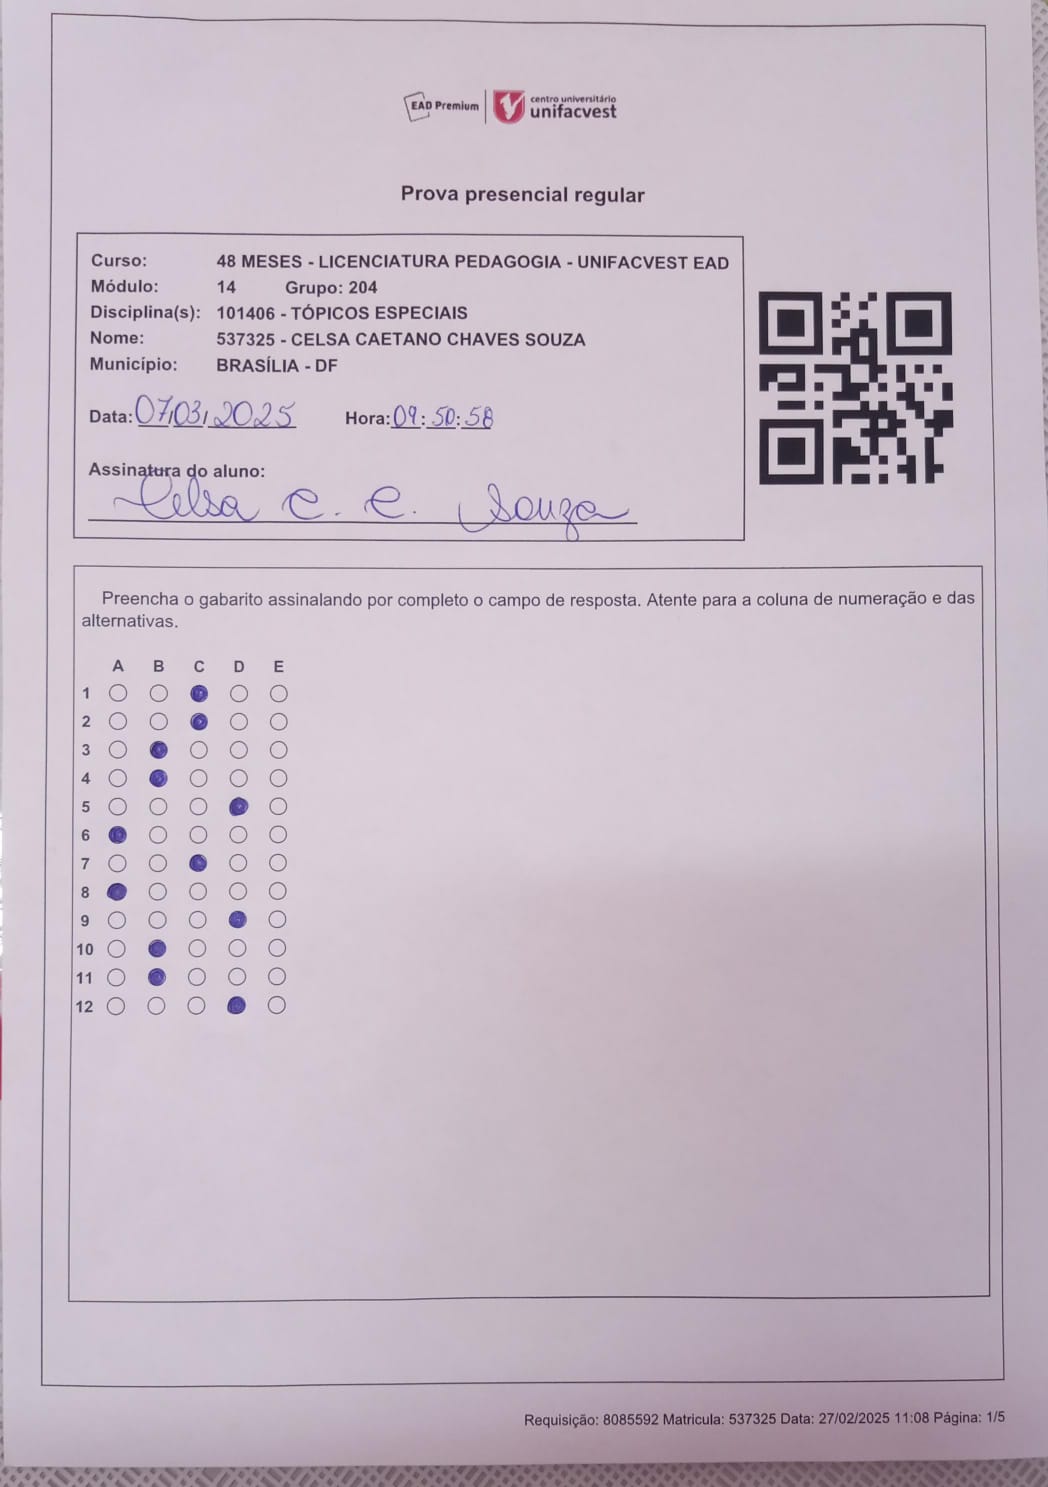 EAD Premium
centro universitário
unifacvest
Prova presencial regular
Curso: 48 MESES - LICENCIATURA PEDAGOGIA - UNIFACVEST EAD
Módulo: 14 Grupo: 204
Disciplina(s): 101406 - TÓPICOS ESPECIAIS
Nome: 537325 - CELSA CAETANO CHAVES SOUZA
Município: BRASÍLIA - DF
Data: 07/03/2025 Hora: 09:50:58
Assinatura do aluno:
Celsa C. C. Souza
Preencha o gabarito assinalando por completo o campo de resposta. Atente para a coluna de numeração e das
alternativas.
A B C D E
1
2
3
4
5
6
7
8
9
10
11
12
Requisição: 8085592 Matricula: 537325 Data: 27/02/2025 11:08 Página: 1/5